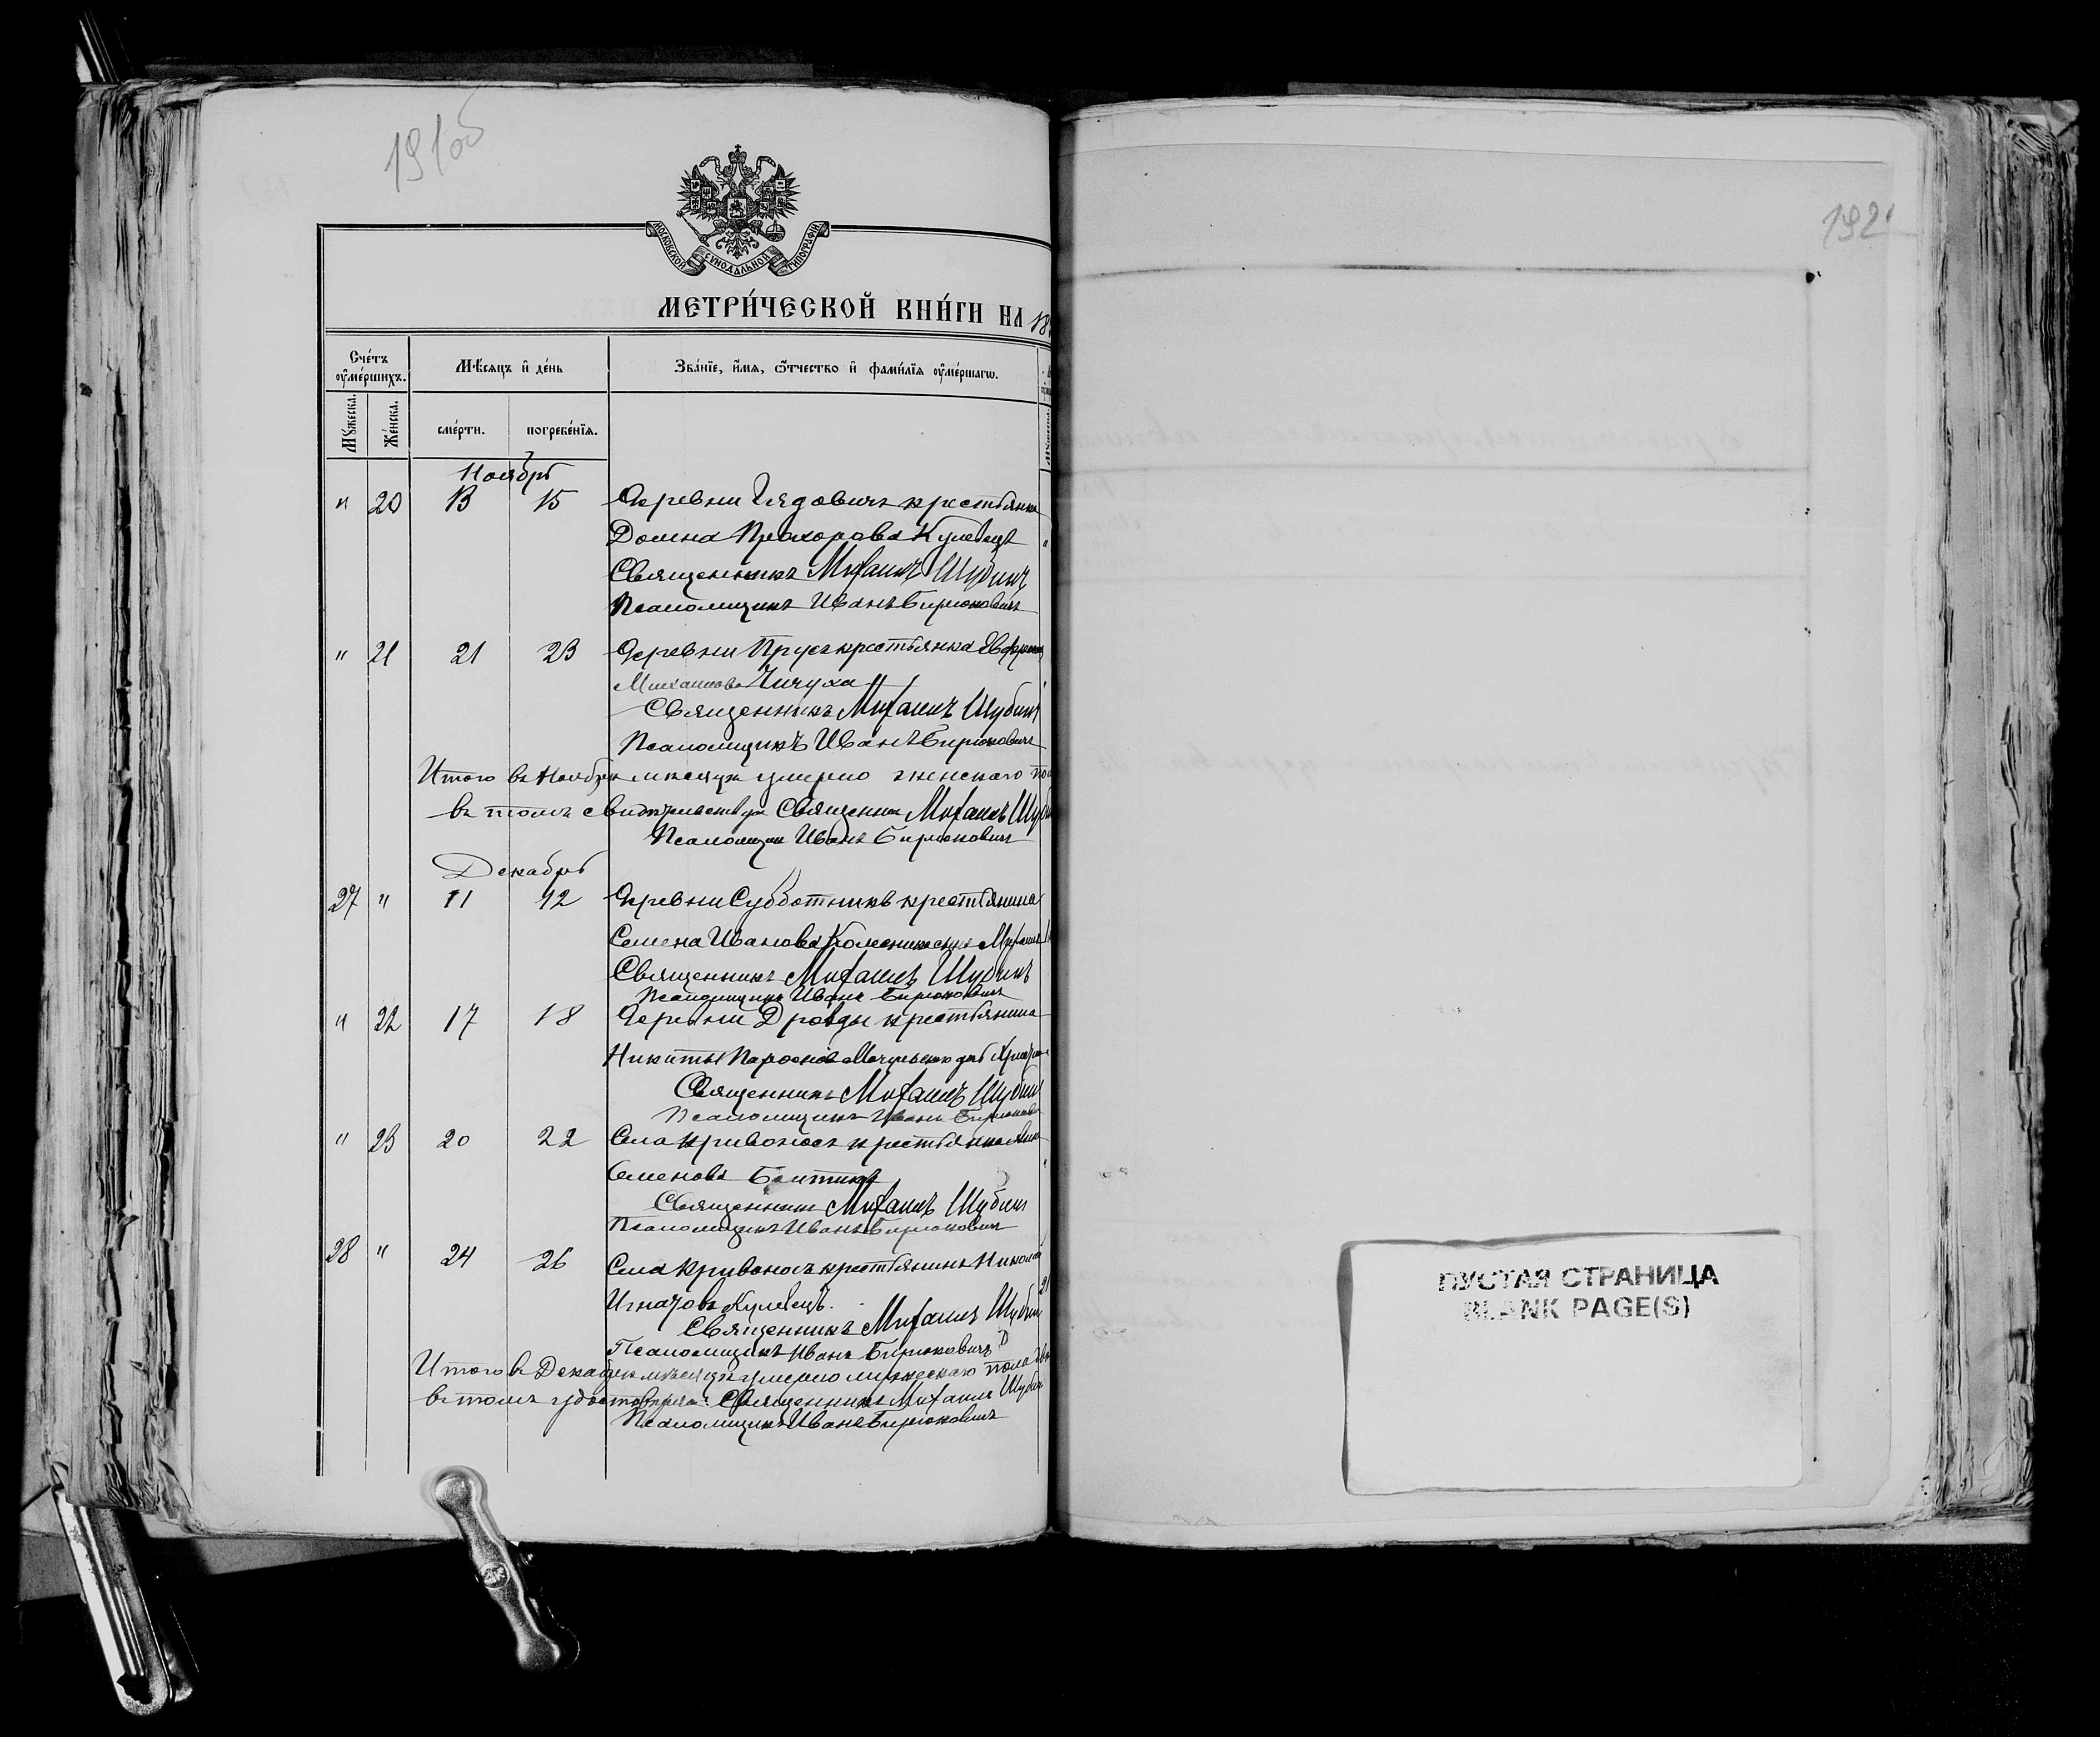 191 об
192
МОСКОВСКОЙ СУНОДАЛЬНОЙ ТИПОГРАФІИ
МЕТРИ́ЧЕСКОЙ КНИ́ГИ НА 18
Сче́тъ ᲂу҆ме́ршихъ.
Мѣ́сяцъ и҆ де́нь
Зва́нїе, и҆́мѧ, ѻ҆́тчество и҆ фами́лїѧ ᲂу҆ме́ршагѡ.
Мꙋ́жеска.
Же́нска.
сме́рти.
погребе́нїѧ.
Ноябрь
" 20 13 15 Деревни Гядовичъ крестьянка
Домна Прохорова Кулевецъ
Священникъ Михаилъ Шубинъ
Псаломщикъ Иванъ Бирюковичъ
" 21 21 23 Деревни Прусъ крестьянка
Михаилова Чичуха
Священникъ Михаилъ Шубинъ
Псаломщикъ Иванъ Бирюковичъ
Итого въ Ноябрѣ мѣсяцѣ умерло женскаго
въ томъ свидѣтельствуемъ Священникъ Михаилъ
Псаломщикъ Иванъ Бирюковичъ
Декабрь
27 " 11 12 Деревни Субботникъ крестьянина
Семена Иванова сынъ Михаилъ
Священникъ Михаилъ Шубинъ
Псаломщикъ Иванъ Бирюковичъ
" 22 17 18 Деревни Дрозды крестьянина
Никиты дочь
Священникъ Михаилъ Шубинъ
Псаломщикъ Иванъ
" 23 20 22 Села Кривоносъ крестьянка
Семенова
Священникъ Михаилъ Шубинъ
Псаломщикъ Иванъ Бирюковичъ
28 " 24 26 Села Кривоносъ крестьянинъ Николай
Игнатовъ Кулевецъ.
Священникъ Михаилъ Шубинъ
Псаломщикъ Иванъ Бирюковичъ
Итого въ Декабрѣ мѣсяцѣ умерло мужескаго пола
въ томъ Священникъ Михаилъ Шубинъ
Псаломщикъ Иванъ Бирюковичъ
ПУСТАЯ СТРАНИЦА
BLANK PAGE(S)